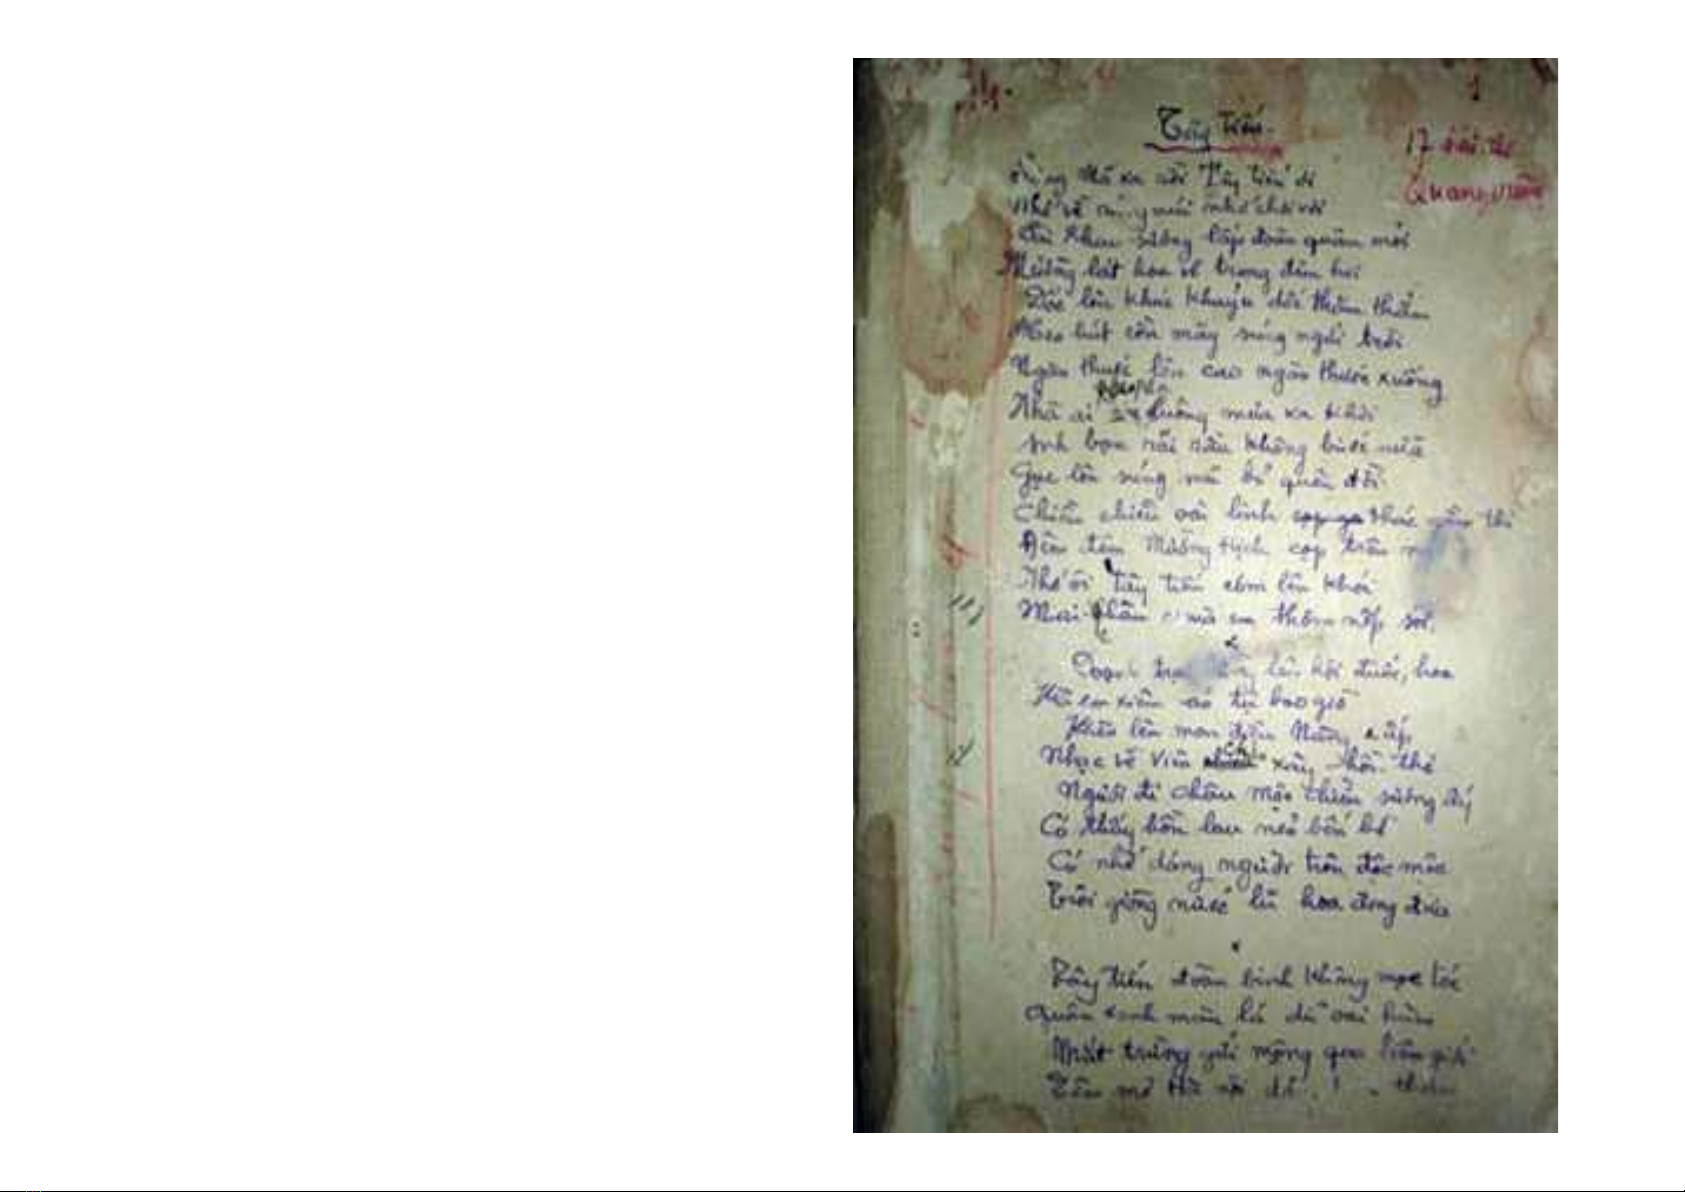 1
Tây tiến
17 bài thơ
Quang Dũng
Sông Mã xa rồi Tây tiến ơi
Nhớ về rừng núi nhớ chơi vơi
Sài Khao sương lấp đoàn quân mỏi
Mường lát hoa về trong đêm hơi
Dốc lên khúc khuỷu dốc thăm thẳm
Heo hút cồn mây súng ngửi trời
Ngàn thước lên cao ngàn thước xuống
Nhà ai luông mưa xa khơi
Anh bạn rãi dầu không bước nữa
Gục lên súng mũ bỏ quên đời
Chiều chiều oai linh thác thì
Đêm đêm Mường Hịch cọp trêu
Nhớ ôi tây tiến cơm lên khói
Mai Châu mùa em thơm nếp xôi.
Doanh lên hội đuốc, hoa
Kìa em xiêm áo tự bao giờ
Khèn lên man điệu Nàng e ấp
Nhạc về Viên xây hồn thơ
Người đi Châu Mộc chiều sương ấy
Có thấy hồn lau nẻo bến bờ
Có nhớ dáng người trên độc mộc
Trôi giòng nước lũ hoa đong đưa
Tây tiến đoàn binh không mọc tóc
Quân xanh màu lá dữ oai hùm
Mắt trừng gửi mộng qua biên giới